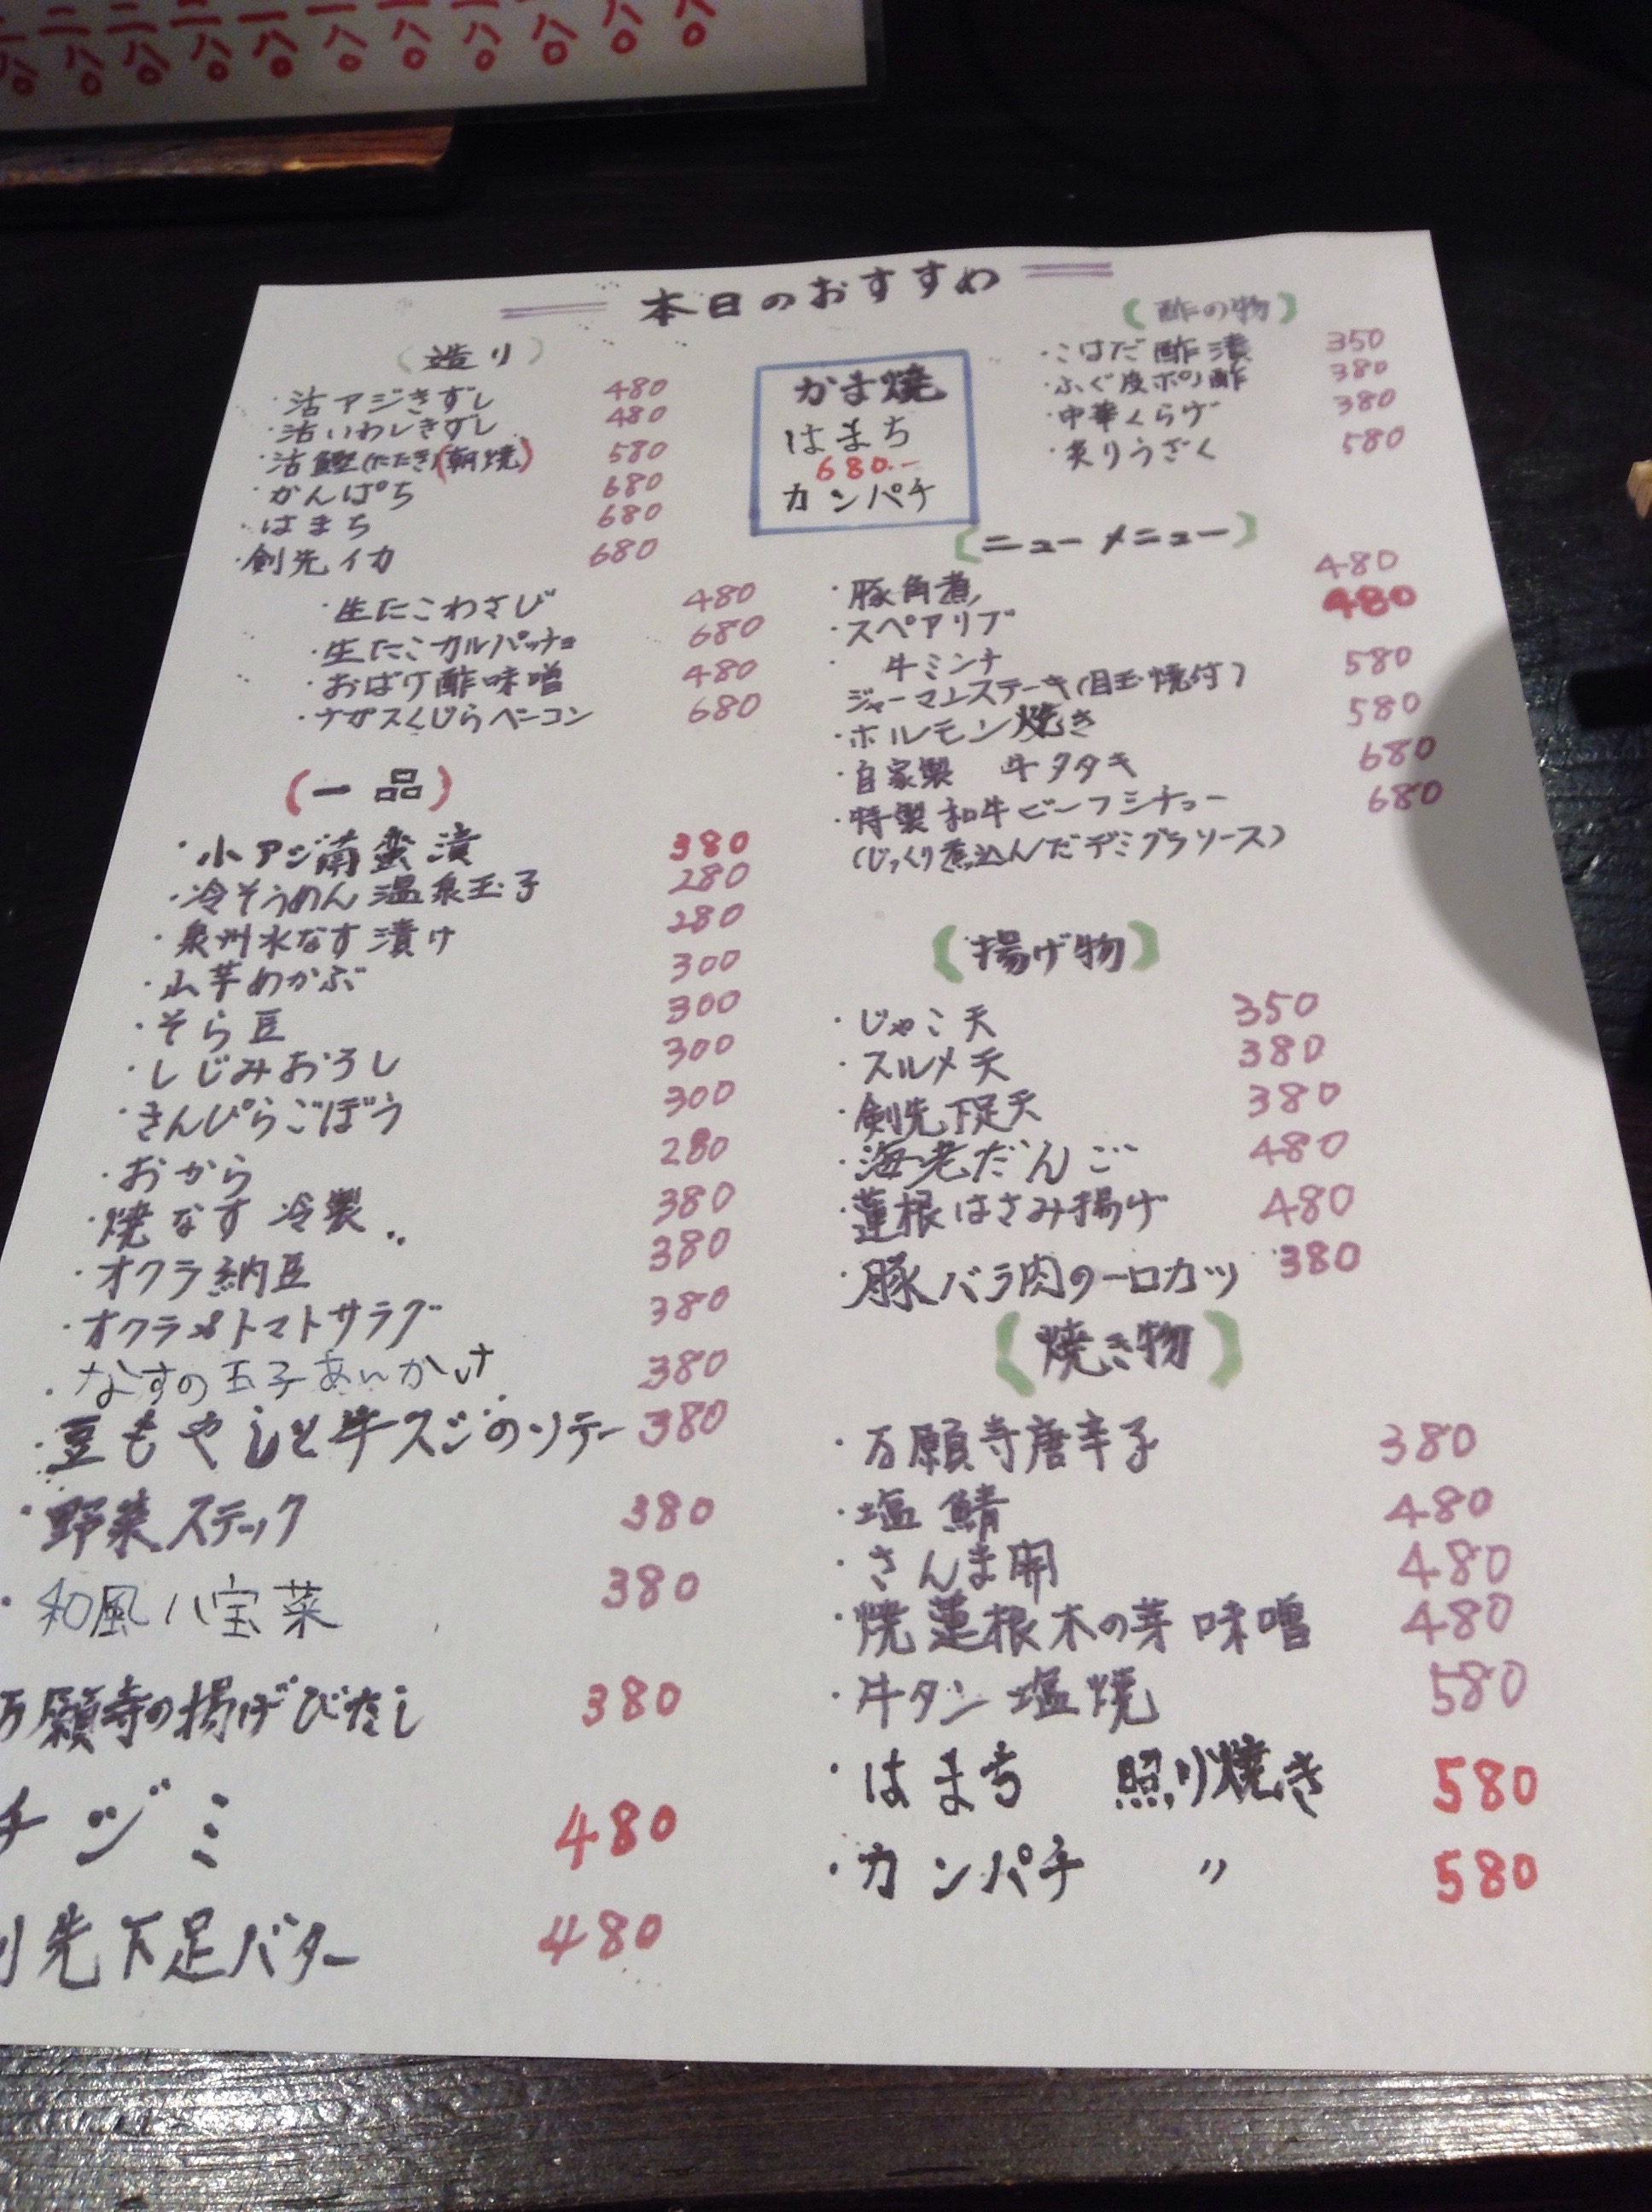 本日のおすすめ
(造り)
・活アジきずし 480
・活いわしきずし 480
・活鰹(たたき)(朝焼) 580
・かんぱち 680
・はまち 680
・剣先イカ 680
・生たこわさび 480
・生たこカルパッチョ 680
・おばけ酢味噌 480
・ナガスくじらベーコン 680
(一品)
・小アジ南蛮漬 380
・冷そうめん温泉玉子 280
・泉州水なす漬け 280
・山芋めかぶ 300
・そら豆 300
・しじみおろし 300
・きんぴらごぼう 300
・おから 280
・焼なす冷製 380
・オクラ納豆 380
・オクラ&トマトサラダ 380
・なすの玉子あんかけ 380
・豆もやしと牛スジのソテー 380
・野菜スティック 380
・和風八宝菜 380
万願寺の揚げびたし 380
チヂミ 480
先下足バター 480
かま焼
はまち
680.-
カンパチ
(酢の物)
・こはだ酢漬 350
・ふぐ皮ポン酢 380
・中華くらげ 380
・炙りうざく 580
(ニューメニュー)
・豚角煮 480
・スペアリブ 480
・牛ミンチ
ジャーマンステーキ(目玉焼付) 580
・ホルモン焼き 580
・自家製 牛タタキ 680
・特製和牛ビーフシチュー 680
(じっくり煮込んだデミグラソース)
(揚げ物)
・じゃこ天 350
・スルメ天 380
・剣先下足天 380
・海老だんご 480
・蓮根はさみ揚げ 480
・豚バラ肉の一口カツ 380
(焼き物)
・万願寺唐辛子 380
・塩鯖 480
・さんま開 480
・焼蓮根木の芽味噌 480
・牛タン塩焼 580
・はまち 照り焼き 580
・カンパチ 〃 580